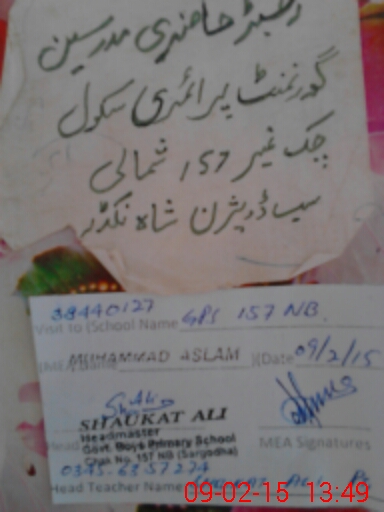 رجسٹر حاضری مدرسین
گورنمنٹ پرائمری سکول
چک نمبر 157 شمالی
سب ڈویژن شاہ نکڈر
38440127
Visit to (School Name GPS 157 NB.
(MEA) Name MUHAMMAD ASLAM )(Date 09/2/15
SHAUKAT ALI
Headmaster
Govt. Boys Primary School
Chak No. 157 NB (Sargodha)
Head
MEA Signatures
Head Teacher Name
09-02-15 13:49